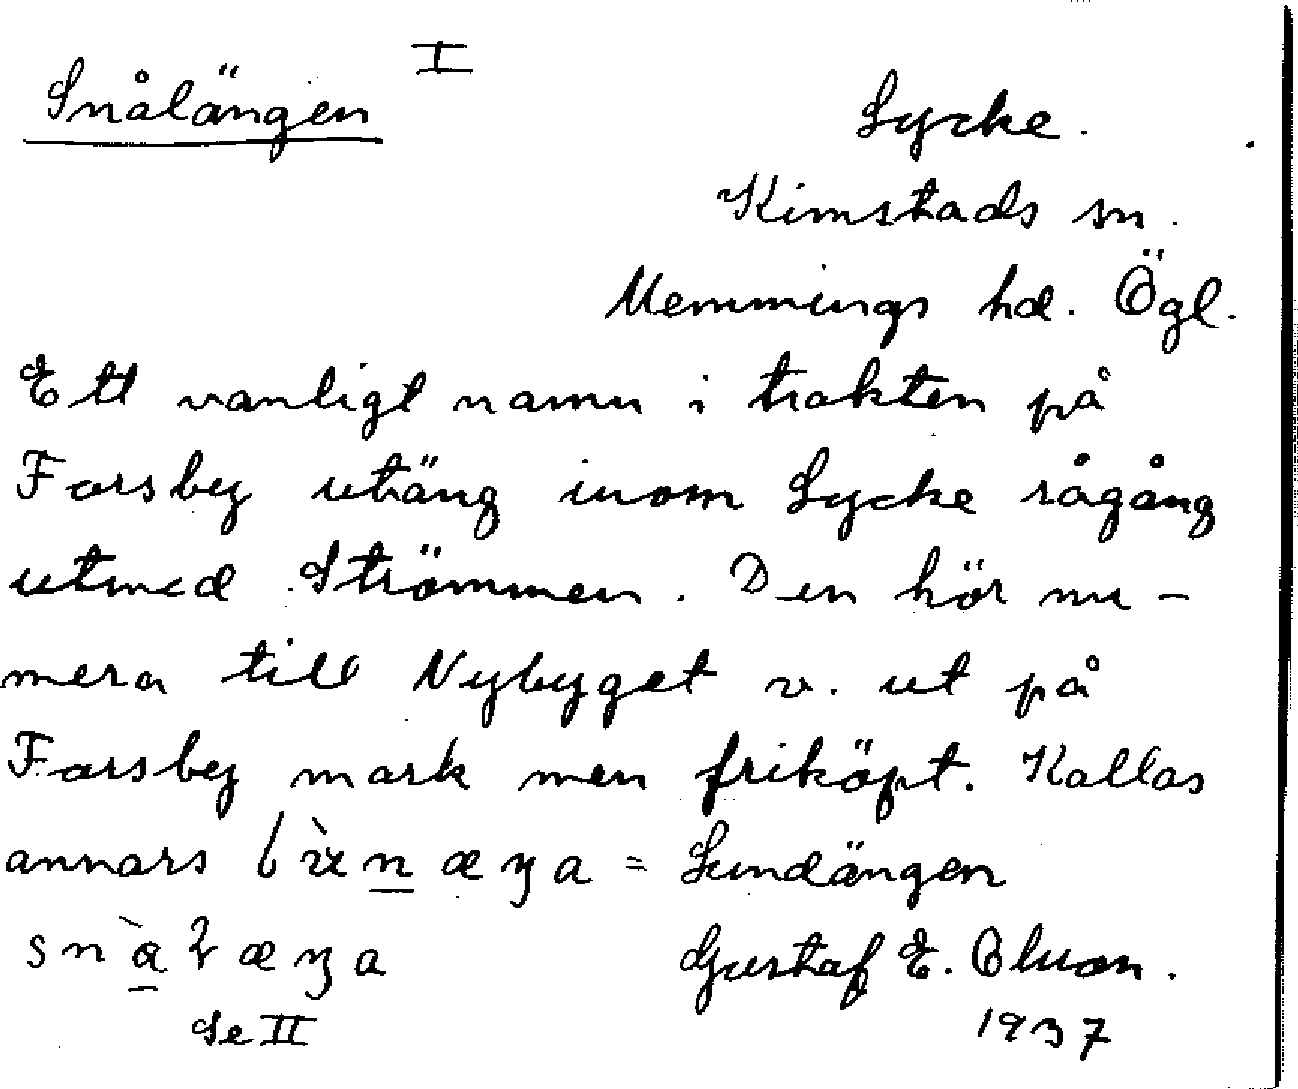 Snålängen I
Lycke.
Kimstads sn.
Memmings hd. Ögl.
Ett vanligt namn i trakten på
Forsby utäng inom Lycke rågång
utmed Strömmen. Den hör nu-
mera till Nybyget v. ut på
Forsby mark men friköpt. Kallas
annars = Lundängen
Gustaf E. Olsson.
Se II
1937